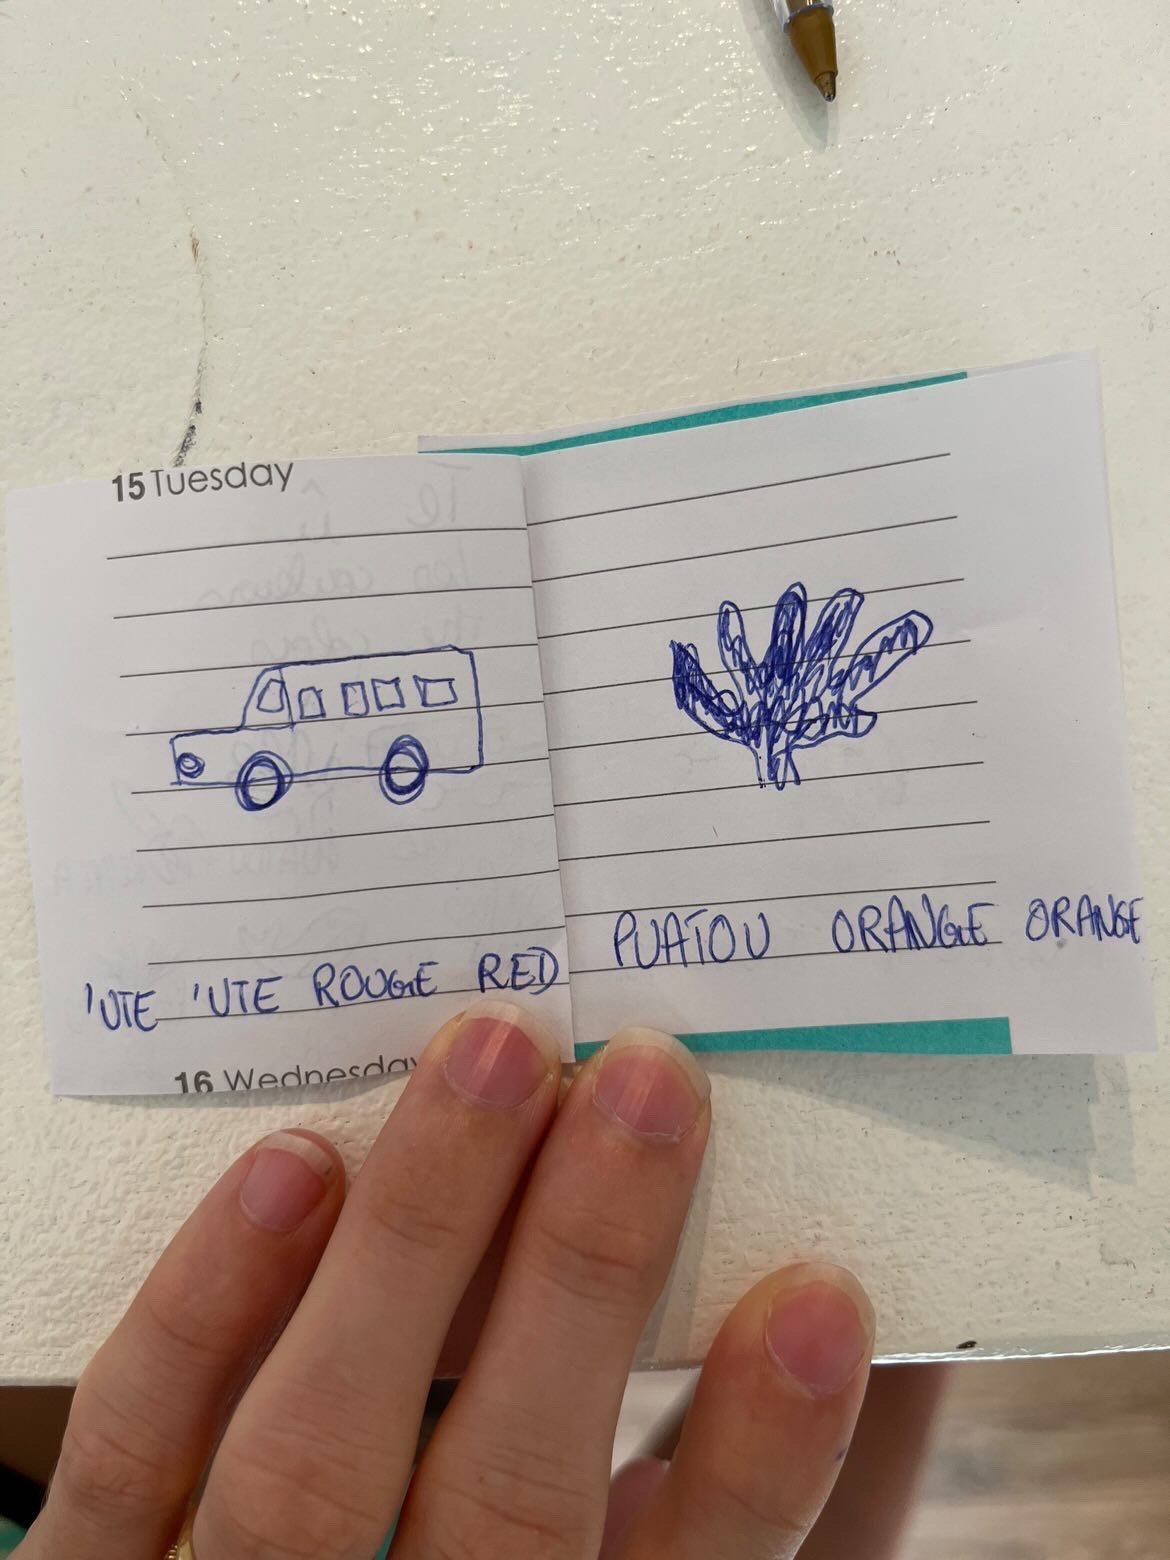 15 Tuesday
'UTE 'UTE ROUGE RED
16 Wednesday
PUATOU ORANGE ORANGE